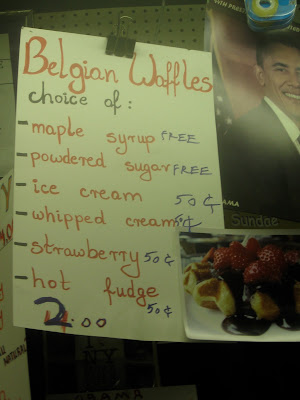 Belgian Waffles
choice of:
- maple syrup FREE
- powdered sugar FREE
- ice cream 50¢
- whipped cream 50¢
- strawberry 50¢
- hot fudge 50¢
2.00
AMA
Sundae
NY
OBAMA